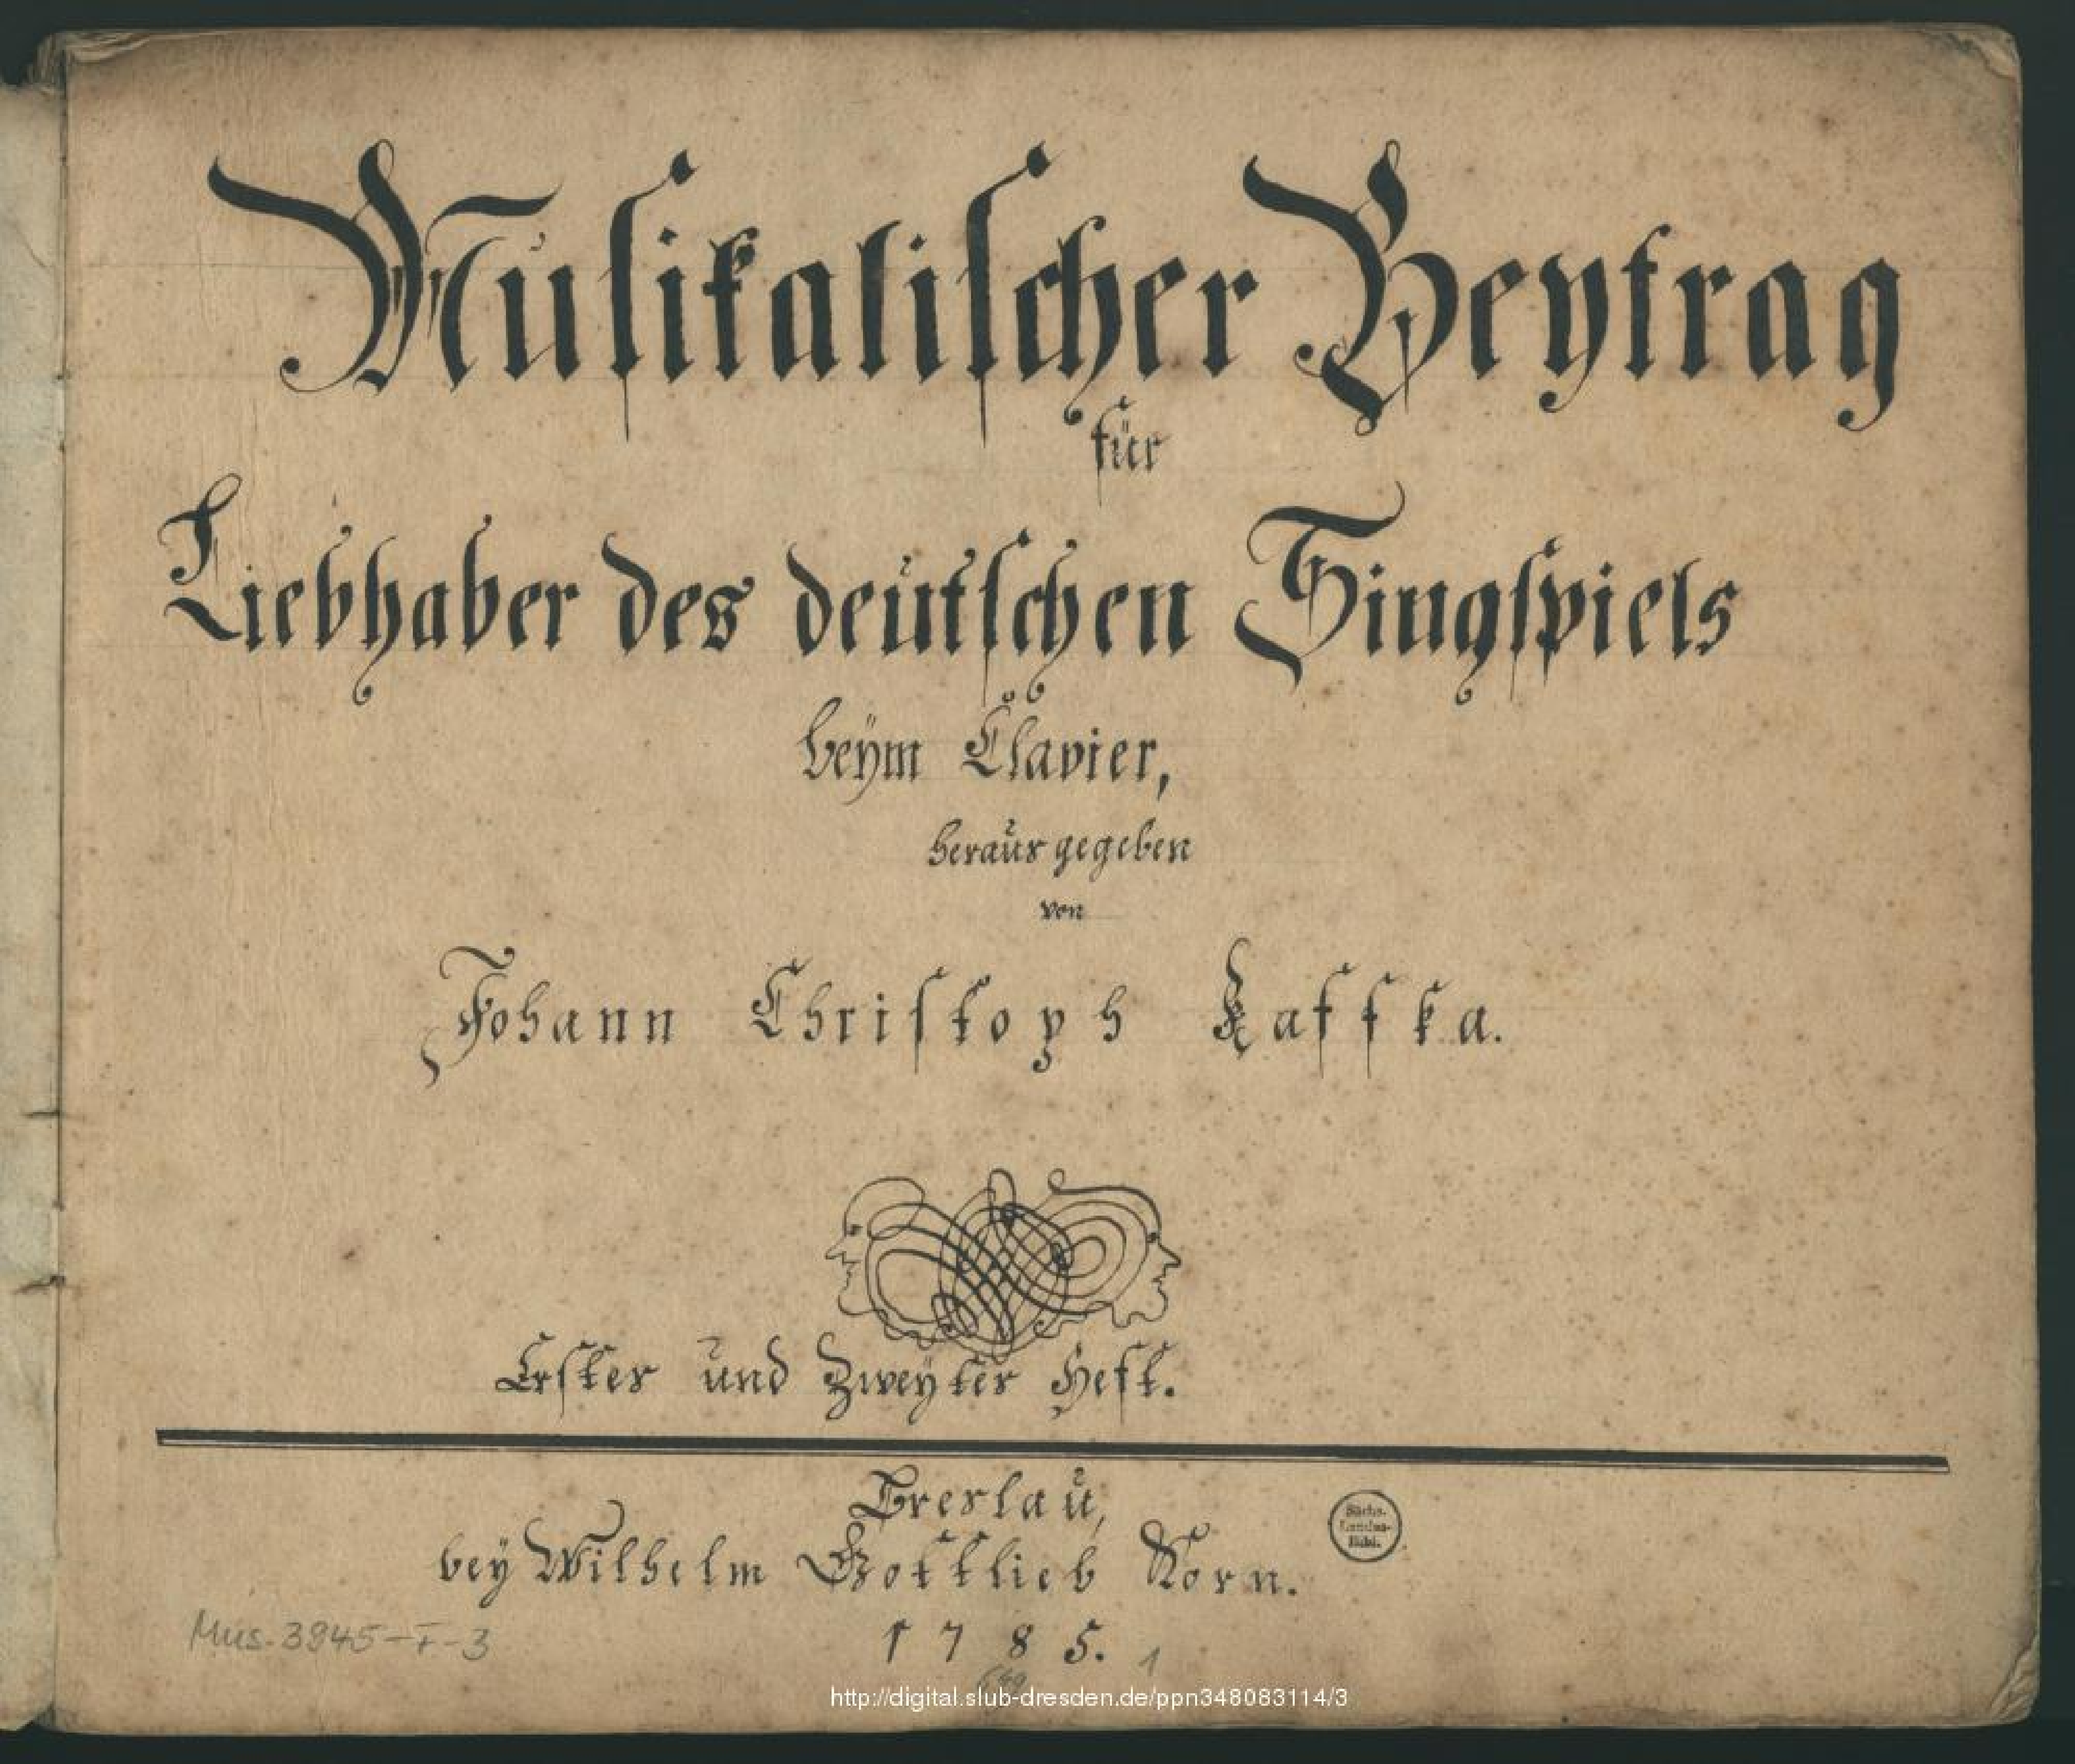 Musikalischer Beytrag
für
Liebhaber des deutschen Singspiels
beym Clavier,
herausgegeben
von
Johann Christoph Kaffka.
Erster und Zweyter Heft.
Breslau,
bey Wilhelm Gottlieb Korn.
Sächs.
Landes-
Bibl.
1785.
1
Mus. 3945-F-3
http://digital.slub-dresden.de/ppn348083114/3